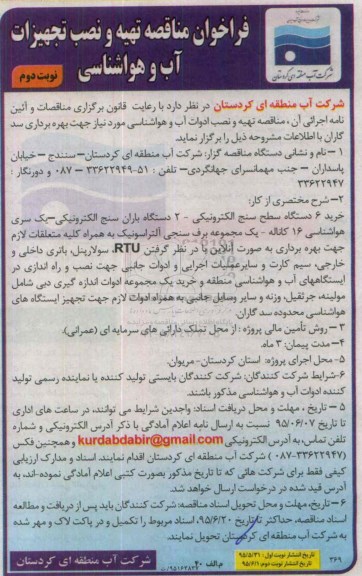 شرکت آب منطقه ای کردستان
فراخوان مناقصه تهیه و نصب تجهیزات
آب و هواشناسی
نوبت دوم
شرکت آب منطقه ای کردستان در نظر دارد با رعایت قانون برگزاری مناقصات و آئین
نامه اجرائی آن ، مناقصه تهیه و نصب ادوات آب و هواشناسی مورد نیاز جهت بهره برداری سد
گاران با اطلاعات مشروحه ذیل را برگزار نماید.
۱– نام و نشانی دستگاه مناقصه گزار: شرکت آب منطقه ای کردستان– سنندج – خیابان
پاسداران – جنب مهمانسرای جهانگردی– تلفن : ۵۱-۳۳۶۲۲۹۴۹ -۰۸۷ و دورنگار :
۳۳۶۲۲۹۴۷
۲– شرح مختصری از کار:
خرید ۶ دستگاه سطح سنج الکترونیکی - ۲ دستگاه باران سنج الکترونیکی– یک سری
هواشناسی ۱۶ کاناله - یک مجموعه برف سنجی آلتراسونیک به همراه کلیه متعلقات لازم
جهت بهره برداری به صورت آنلاین با در نظر گرفتن RTU، سولارپنل، باتری داخلی و
خارجی، سیم کارت و سایر عملیات اجرایی و ادوات جانبی جهت نصب و راه اندازی در
ایستگاههای آب و هواشناسی منطقه و خرید یک مجموعه ادوات اندازه گیری دبی شامل
مولینه، جرثقیل، وزنه و سایر وسایل جانبی به همراه ادوات لازم جهت تجهیز ایستگاه های
هواشناسی محدوده سد گاران.
۳– روش تأمین مالی پروژه : از محل تملک دارائی های سرمایه ای (عمرانی).
۴– مدت پیمان: ۳ ماه.
۵– محل اجرای پروژه: استان کردستان– مریوان.
۶–شرایط شرکت کنندگان: شرکت کنندگان بایستی تولید کننده یا نماینده رسمی تولید
کننده ادوات آب و هواشناسی مذکور باشند.
۵– تاریخ ، مهلت و محل دریافت اسناد: واجدین شرایط می توانند، در ساعت های اداری
تا تاریخ ۹۵/۰۶/۰۷ نسبت به ارسال نامه اعلام آمادگی با ذکر آدرس الکترونیکی و شماره
تلفن تماس، به آدرس الکترونیکی kurdabdabir@gmail.com و همچنین فکس
(۳۳۶۲۲۹۴۷-۰۸۷ ) شرکت آب منطقه ای کردستان اقدام نمایند. اسناد و مدارک ارزیابی
کیفی فقط برای شرکت هائی که تا تاریخ مذکور بصورت کتبی اعلام آمادگی نموده‌اند، به
آدرس قید شده در درخواست ارسال خواهد شد.
۶– تاریخ، مهلت و محل تحویل اسناد مناقصه: شرکت کنندگان باید پس از دریافت و مطالعه
اسناد مناقصه، حداکثر تا تاریخ ۹۵/۶/۲۰، اسناد مربوط را تکمیل و در پاکت لاک و مهر شده
به شرکت آب منطقه ای کردستان تحویل نمایند.
۳۶۹
تاریخ انتشار نوبت اول: ۹۵/۵/۳۱
تاریخ انتشار نوبت دوم: ۹۵/۶/۱
م الف ۴۰
شرکت آب منطقه ای کردستان